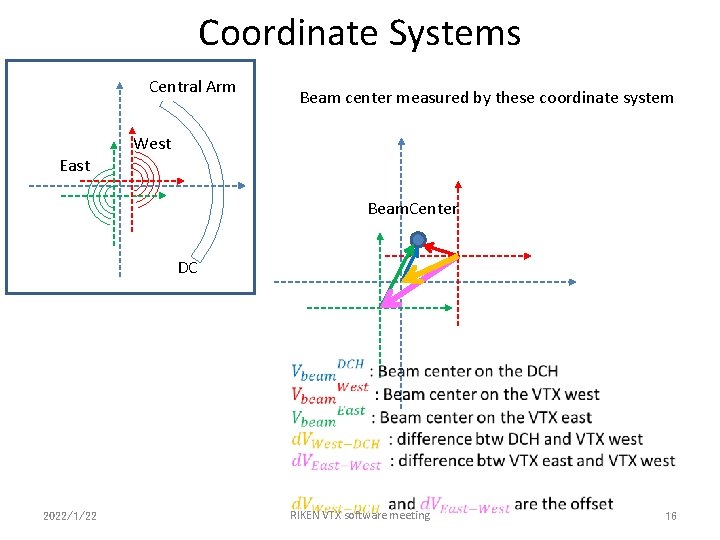 Coordinate Systems
Central Arm
Beam center measured by these coordinate system
West
East
Beam.Center
DC
V_beam^DCH : Beam center on the DCH
V_beam^West : Beam center on the VTX west
V_beam^East : Beam center on the VTX east
dV_West−DCH : difference btw DCH and VTX west
dV_East−West : difference btw VTX east and VTX west
dV_West−DCH and dV_East−West are the offset
2022/1/22
RIKEN VTX software meeting
16